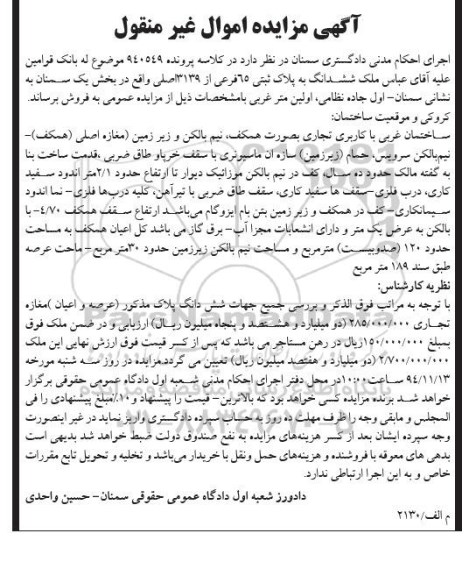 آگهی مزایده اموال غیر منقول
اجرای احکام مدنی دادگستری سمنان در نظر دارد در کلاسه پرونده ۹۴۰۵۴۹ موضوع له بانک قوامین
علیه آقای عباس ملک ششدانگ به پلاک ثبتی ۶۵فرعی از ۳۱۳۹اصلی واقع در بخش یک سمنان به
نشانی سمنان- اول جاده نظامی، اولین متر غربی بامشخصات ذیل از مزایده عمومی به فروش برساند.
کروکی و موقعیت ساختمان:
ساختمان غربی با کاربری تجاری بصورت همکف، نیم بالکن و زیر زمین (مغازه اصلی (همکف)-
نیم‌بالکن سرویس، حمام (زیرزمین) سازه آن ماسیوتری با سقف خرپاو طاق ضربی ،قدمت ساخت بنا
به گفته مالک حدود ده سال، کف در نیم بالکن مرزائیک دیوار تا ارتفاع حدود ۲/۱متر اندود سفید
کاری، درب فلزی-سقف ها سفید کاری، سقف طاق ضربی با تیرآهن، کلیه درب‌ها فلزی- نما اندود
سیمانکاری- کف در همکف و زیر زمین بتن بام ایزوگام می‌باشد ارتفاع سقف همکف ۴/۷۰- با
بالکن به عرض یک متر و دارای انشعابات مجزا آب- برق گاز می باشد کل اعیان همکف به مساحت
حدود ۱۲۰ (صدوبیست) مترمربع و مساحت نیم بالکن زیرزمین حدود ۳۰متر مربع- ماحت عرصه
طبق سند ۱۸۹ متر مربع
نظریه کارشناس:
با توجه به مراتب فوق الذکر و بررسی جمیع جهات شش دانگ پلاک مذکور (عرصه و اعیان )مغازه
تجاری ۲/۸۵۰/۰۰۰/۰۰۰ (دو میلیارد و هشتصد و پنجاه میلیون ریال) ارزیابی و در ضمن ملک فوق
بمبلغ ۱۵۰/۰۰۰/۰۰۰ریال در رهن مستاجر می باشد که پس از کسر قیمت فوق ارزش نهایی این ملک
۲/۷۰۰/۰۰۰/۰۰۰ (دو میلیارد و هفتصد میلیون ریال) تعیین می گردد.مزایده در روز سه شنبه مورخه
۹۴/۱۱/۱۳ ساعت۱۰:۰۰در محل دفتر اجرای احکام مدنی شعبه اول دادگاه عمومی حقوقی برگزار
خواهد شد برنده مزایده کسی خواهد بود که بالاترین- قیمت را پیشنهاد و ۱۰٪مبلغ پیشنهادی را فی
المجلس و مابقی وجه را ظرف مهلت ده روز به حساب سپرده دادگستری واریز نماید در غیر اینصورت
وجه سپرده ایشان بعد از کسر هزینه‌های مزایده به نفع صندوق دولت ضبط خواهد شد بدیهی است
بدهی های معوقه با فروشنده و هزینه‌های حمل ونقل با خریدار می‌باشد و تخلیه و تحویل تابع مقررات
خاص و به این اجرا ارتباطی ندارد.
دادورز شعبه اول دادگاه عمومی حقوقی سمنان- حسین واحدی
م الف/۲۱۳۰